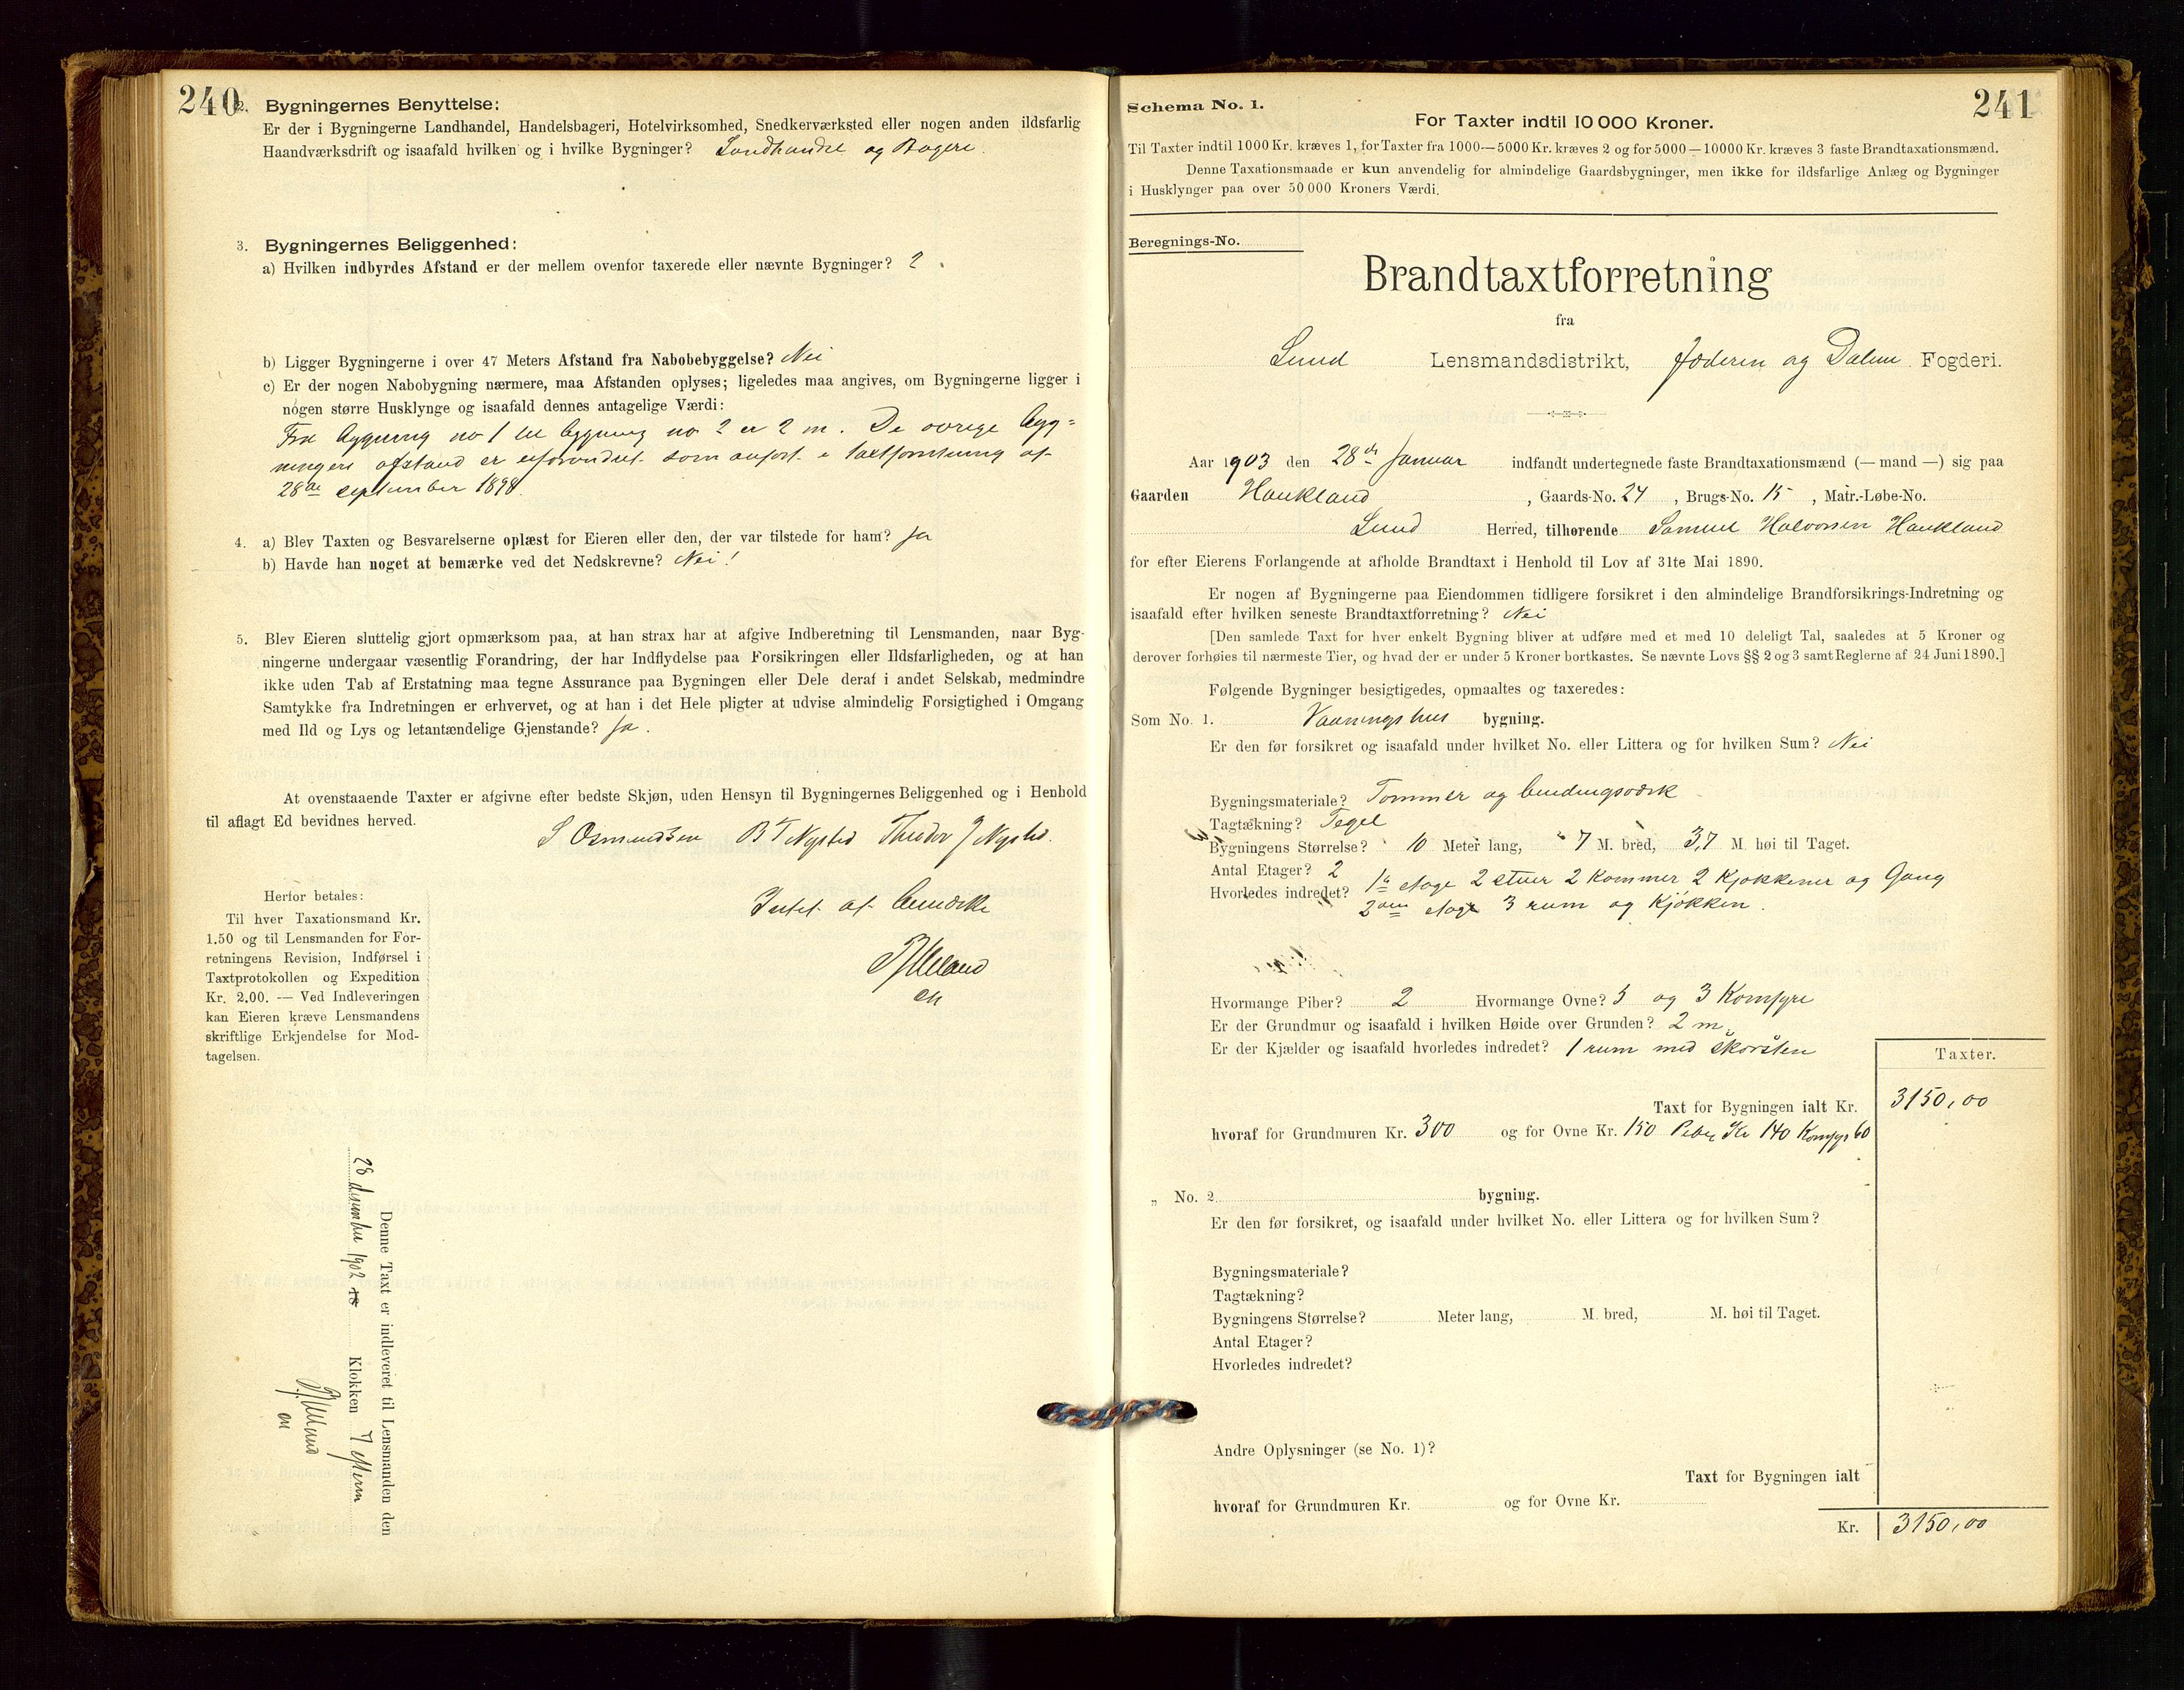 240
2. Bygningernes Benyttelse:
Er der i Bygningerne Landhandel, Handelsbageri, Hotelvirksomhed, Snedkerværksted eller nogen anden ildsfarlig
Haandværksdrift og isaafald hvilken og i hvilke Bygninger? Landhandel og Bageri.
3. Bygningernes Beliggenhed:
a) Hvilken indbyrdes Afstand er der mellem ovenfor taxerede eller nævnte Bygninger? 2
b) Ligger Bygningerne i over 47 Meters Afstand fra Nabobebyggelse? Nei
c) Er der nogen Nabobygning nærmere, maa Afstanden oplyses; ligeledes maa angives, om Bygningerne ligger i
nogen større Husklynge og isaafald dennes antagelige Værdi:
Fra bygning no 1 til bygning no 2 er 2 m. De øvrige byg=
ningers afstand er uforandret som anført i taxtforretning af
28de september 1898.
4. a) Blev Taxten og Besvarelserne oplæst for Eieren eller den, der var tilstede for ham? Ja
b) Havde han noget at bemærke ved det Nedskrevne? Nei!
5. Blev Eieren sluttelig gjort opmærksom paa, at han strax har at afgive Indberetning til Lensmanden, naar Byg-
ningerne undergaar væsentlig Forandring, der har Indflydelse paa Forsikringen eller Ildsfarligheden, og at han
ikke uden Tab af Erstatning maa tegne Assurance paa Bygningen eller Dele deraf i andet Selskab, medmindre
Samtykke fra Indretningen er erhvervet, og at han i det Hele pligter at udvise almindelig Forsigtighed i Omgang
med Ild og Lys og letantændelige Gjenstande? Ja.
At ovenstaaende Taxter er afgivne efter bedste Skjøn, uden Hensyn til Bygningernes Beliggenhed og i Henhold
til aflagt Ed bevidnes herved.
S Osmundsen B T Nysted Theodor J Nysted.
Herfor betales:
Til hver Taxationsmand Kr.
1.50 og til Lensmanden for For-
retningens Revision, Indførsel i
Taxtprotokollen og Expedition
Kr. 2.00. — Ved Indleveringen
kan Eieren kræve Lensmandens
skriftlige Erkjendelse for Mod-
tagelsen.
Intet at bemærke
Denne Taxt er indleveret til Lensmanden den
28 desember 1902 18 Klokken 7 efterm
Schema No. 1.
241
For Taxter indtil 10 000 Kroner.
Til Taxter indtil 1000 Kr. kræves 1, for Taxter fra 1000—5000 Kr. kræves 2 og for 5000—10000 Kr. kræves 3 faste Brandtaxationsmænd.
Denne Taxationsmaade er kun anvendelig for almindelige Gaardsbygninger, men ikke for ildsfarlige Anlæg og Bygninger
i Husklynger paa over 50 000 Kroners Værdi.
Beregnings-No.
Brandtaxtforretning
fra
Lund Lensmandsdistrikt, Jæderen og Dalene Fogderi.
Aar 1903 den 28de Januar indfandt undertegnede faste Brandtaxationsmænd (— mand —) sig paa
Gaarden Haukland, Gaards-No. 24, Brugs-No. 15, Matr.-Løbe-No.
Lund Herred, tilhørende Samuel Halvorsen Haukland
for efter Eierens Forlangende at afholde Brandtaxt i Henhold til Lov af 31te Mai 1890.
Er nogen af Bygningerne paa Eiendommen tidligere forsikret i den almindelige Brandforsikrings-Indretning og
isaafald efter hvilken seneste Brandtaxtforretning? Nei
[Den samlede Taxt for hver enkelt Bygning bliver at udføre med et med 10 deleligt Tal, saaledes at 5 Kroner og
derover forhøies til nærmeste Tier, og hvad der er under 5 Kroner bortkastes. Se nævnte Lovs §§ 2 og 3 samt Reglerne af 24 Juni 1890.]
Følgende Bygninger besigtigedes, opmaaltes og taxeredes:
Som No. 1. Vaaningshus bygning.
Er den før forsikret og isaafald under hvilket No. eller Littera og for hvilken Sum? Nei
Bygningsmateriale? Tømmer og bindingsværk
Tagtækning? Tegel
Bygningens Størrelse? 10 Meter lang, 7 M. bred, 3,7 M. høi til Taget.
Antal Etager? 2
Hvorledes indredet? 1ste etage 2 stuer 2 kammer 2 kjøkkener og Gang
2den etage 3 rum og kjøkken.
Hvormange Piber? 2 Hvormange Ovne? 5 og 3 Komfyre
Er der Grundmur og isaafald i hvilken Høide over Grunden? 2 m.
Er der Kjælder og isaafald hvorledes indredet? 1 rum med skorsten
Taxter.
Taxt for Bygningen ialt Kr. 3150,00
hvoraf for Grundmuren Kr. 300 og for Ovne Kr. 150 Piber Kr 140 Komfyr 60
„ No. 2. bygning.
Er den før forsikret, og isaafald under hvilket No. eller Littera og for hvilken Sum?
Bygningsmateriale?
Tagtækning?
Bygningens Størrelse? Meter lang, M. bred, M. høi til Taget.
Antal Etager?
Hvorledes indredet?
Andre Oplysninger (se No. 1)?
Taxt for Bygningen ialt
hvoraf for Grundmuren Kr. og for Ovne Kr.
Kr. 3150,00